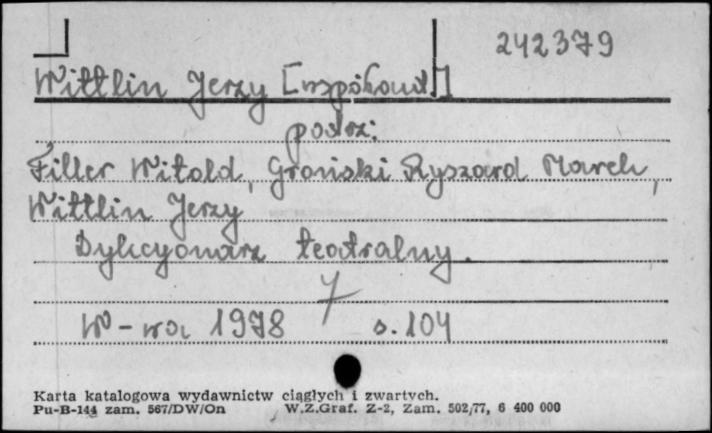 242379
Wittlin Jerzy [współaut.]
patrz:
Filler Witold, Groński Ryszard Marek,
Wittlin Jerzy
Dykcyonarz teatralny.
7
W-wa 1978 s. 104
Karta katalogowa wydawnictw ciągłych i zwartych.
Pu-B-144 zam. 567/DW/On W.Z.Graf. Z-2, Zam. 502/77, 6 400 000